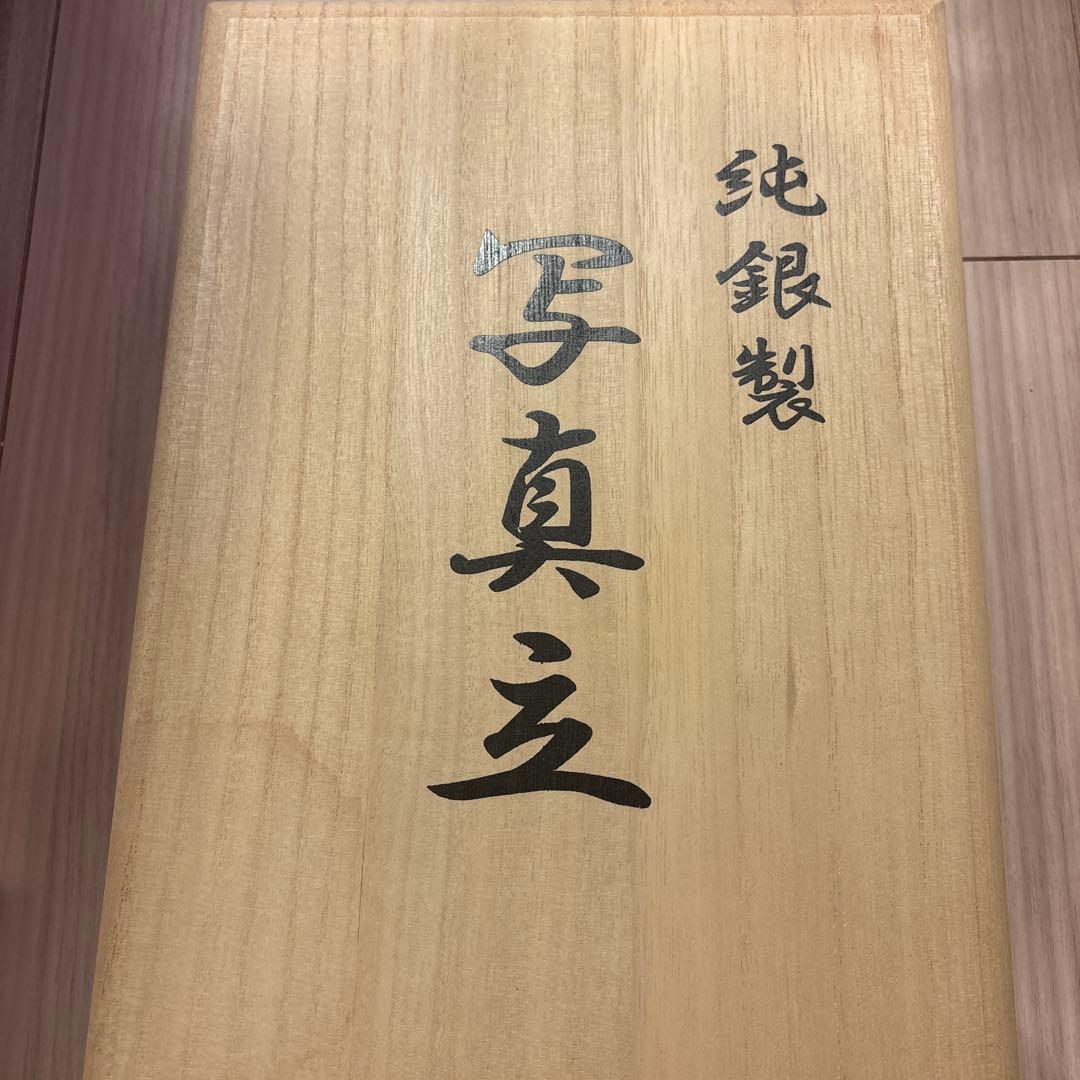 純銀製
写真立